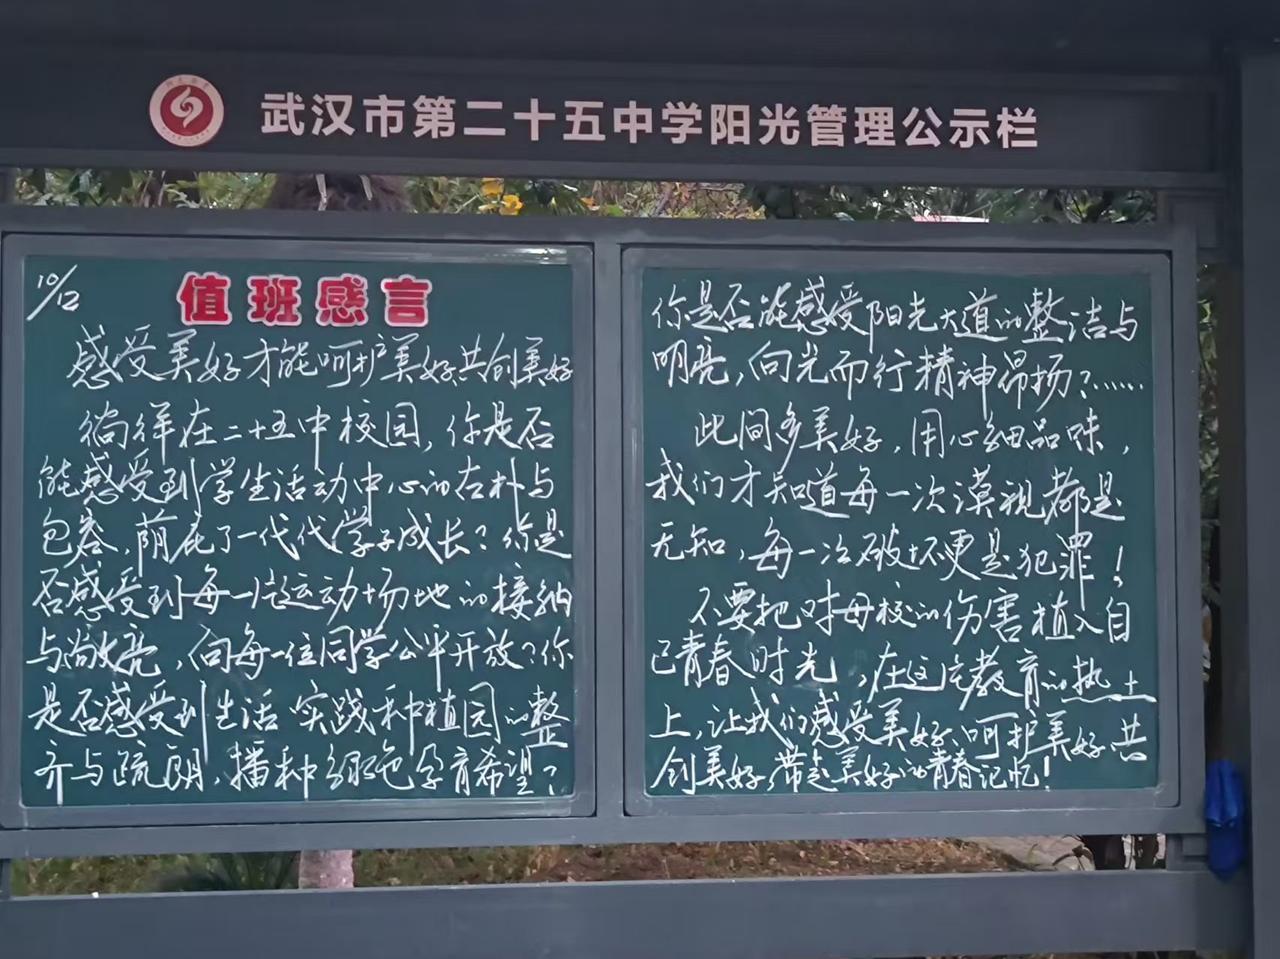 武汉市第二十五中学阳光管理公示栏
10/12
值班感言
感受美好才能呵护美好共创美好
徜徉在二十五中校园，你是否
能感受到学生活动中心的古朴与
包容，荫庇了一代代学子成长？你是
否感受到每一片运动场地的接纳
与敞亮，向每一位同学公平开放？你
是否感受到生活实践种植园的整
齐与疏朗，播种绿色孕育希望？
你是否能感受阳光大道的整洁与
明亮，向光而行精神昂扬？……
此间多美好，用心细品味，
我们才知道每一次漠视都是
无知，每一次破坏更是犯罪！
不要把对母校的伤害植入自
己青春时光，在这片教育的热土
上，让我们感受美好、呵护美好、共
创美好，带走美好的青春记忆！